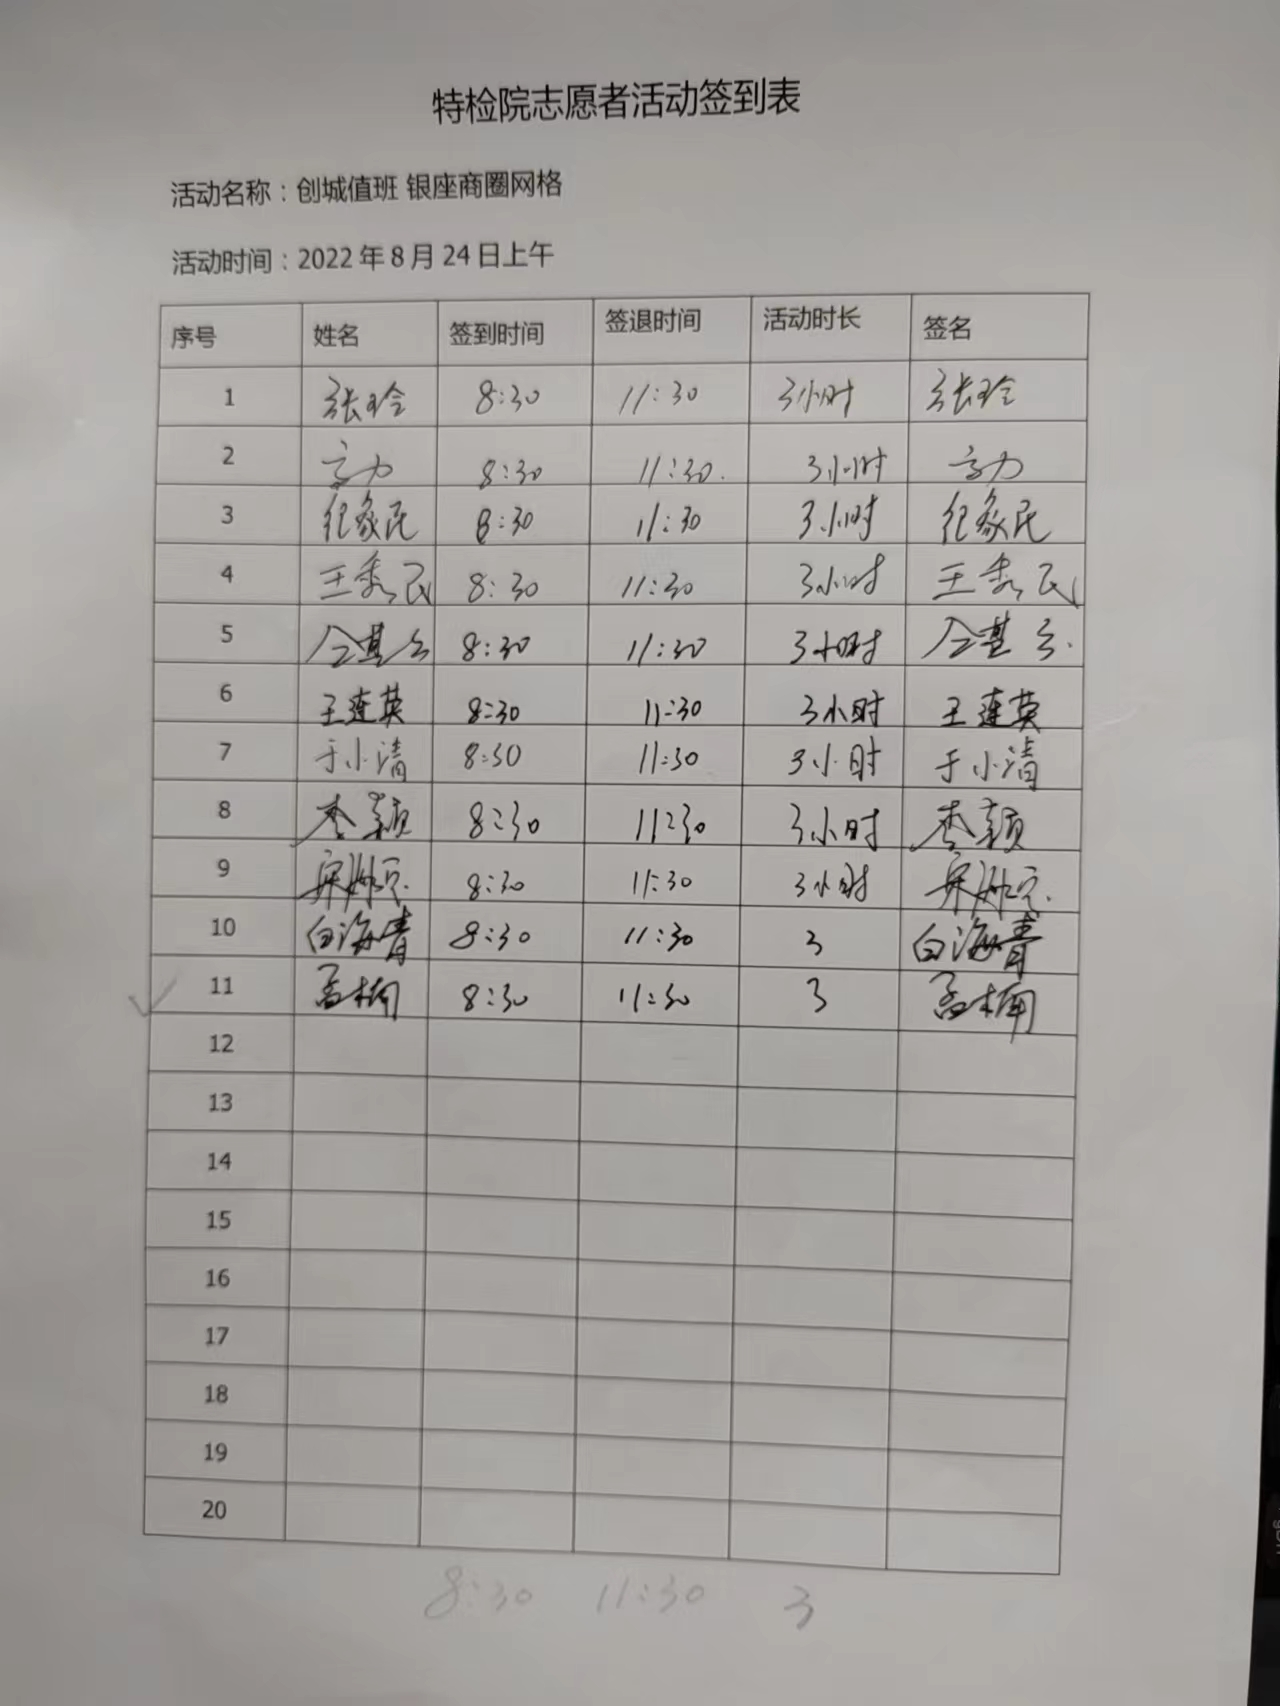 特检院志愿者活动签到表
活动名称：创城值班 银座商圈网格
活动时间：2022年8月24日上午
序号 姓名 签到时间 签退时间 活动时长 签名
1 张玲 8:30 11:30 3小时 张玲
2 8:30 11:30. 3小时
3 纪家民 8:30 11:30 3小时 纪家民
4 王秀民 8:30 11:30 3小时 王秀民
5 8:30 11:30 3小时
6 王莲英 8:30 11:30 3小时 王莲英
7 于小清 8:30 11:30 3小时 于小清
8 李颖 8:30 11:30 3小时 李颖
9 8:30 11:30 3小时
10 白海青 8:30 11:30 3 白海青
11 孟楠 8:30 11:30 3 孟楠
12
13
14
15
16
17
18
19
20
8:30 11:30 3